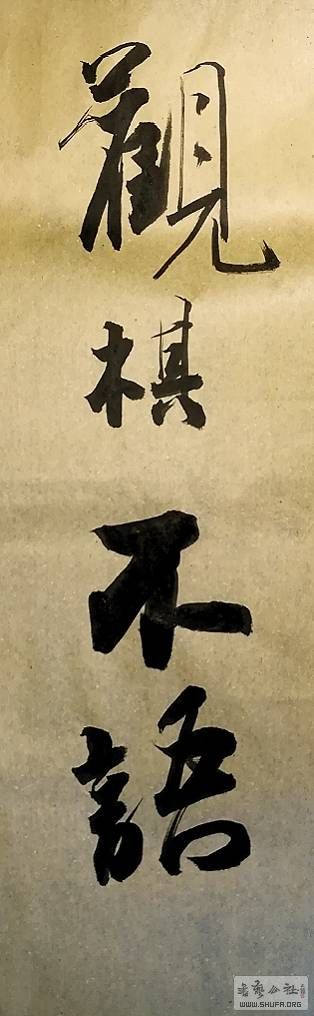 觀棋不語
書藝公社
WWW.SHUFA.ORG